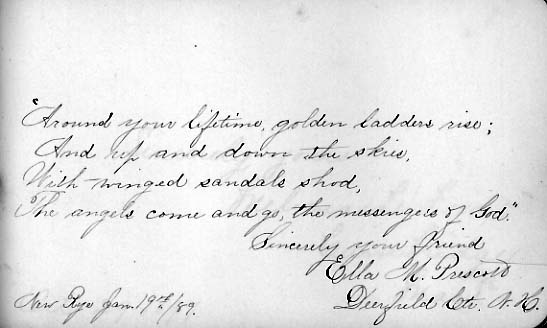 "Around your lifetime, golden ladders rise;
And up and down the skies,
With winged sandals shod,
The angels come and go, the messengers of God."
Sincerely your friend
Ella M. Prescott
New Rye Jan. 19th/89.
Deerfield Ctr. N. H.